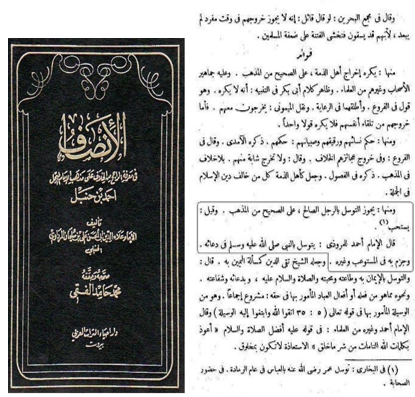 الإنصاف
في معرفة الراجح من الخلاف على مذهب الإمام المبجل
أحمد بن حنبل
تأليف
الإمام علاء الدين أبي الحسن علي بن سليمان المرداوي
الحنبلي
صححه وحققه
محمد حامد الفقي
دار إحياء التراث العربي
بيروت
وقال في مجمع البحرين : لو قال قائل : إنه لا يجوز خروجهم في وقت مفرد لم
يبعد ، لأنهم قد يسقون فتخشى الفتنة على ضعفة المسلمين .
فوائد
منها : يكره إخراج أهل الذمة ، على الصحيح من المذهب . وعليه جماهير
الأصحاب وغيرهم من العلماء . وظاهر كلام أبى بكر فى التنبيه : أنه لا يكره . وهو
قول فى الفروع . وأطلقهما فى الرعاية . ونقل الميمونى : يخرجون معهم . فأما
خروجهم من تلقاء أنفسهم فلا يكره قولا واحداً .
ومنها : حكم نسائهم ورقيقهم وصبيانهم : حكمهم . ذكره الآمدى . وقال
فى الفروع : وفى خروج عجائزهم الخلاف . وقال : ولا تخرج شابة منهم . بلاخلاف
فى المذهب . ذكره فى الفصول . وجعل كأهل الذمة كل من خالف دين الإسلام
فى الجملة .
ومنها : يجوز التوسل بالرجل الصالح ، على الصحيح من المذهب . وقيل :
يستحب (١)
قال الإمام أحمد للمروذى : يتوسل بالنبى صلى الله عليه وسلم فى دعائه .
وجزم به فى المستوعب وغيره . وجعله الشيخ تقى الدين كمسألة اليمين به . قال :
والتوسل بالإيمان به وطاعته ومحبته والصلاة والسلام عليه ، وبدعائه وشفاعته .
ونحوه مما هو من فعله أو أفعال العباد المأمور بها فى حقه : مشروع إجماعا . وهو من
الوسيلة المأمور بها فى قوله تعالى ( ٥ : ٣٥ اتقوا الله وابتغوا إليه الوسيلة ) وقال
الإمام أحمد وغيره من العلماء : فى قوله عليه أفضل الصلاة والسلام « أعوذ
بكلمات الله التامات من شر ماخلق » الاستعاذة لاتكون بمخلوق .
(١) فى البخارى : توسل عمر رضى الله عنه بالعباس فى عام الرمادة . فى حضور
الصحابة .